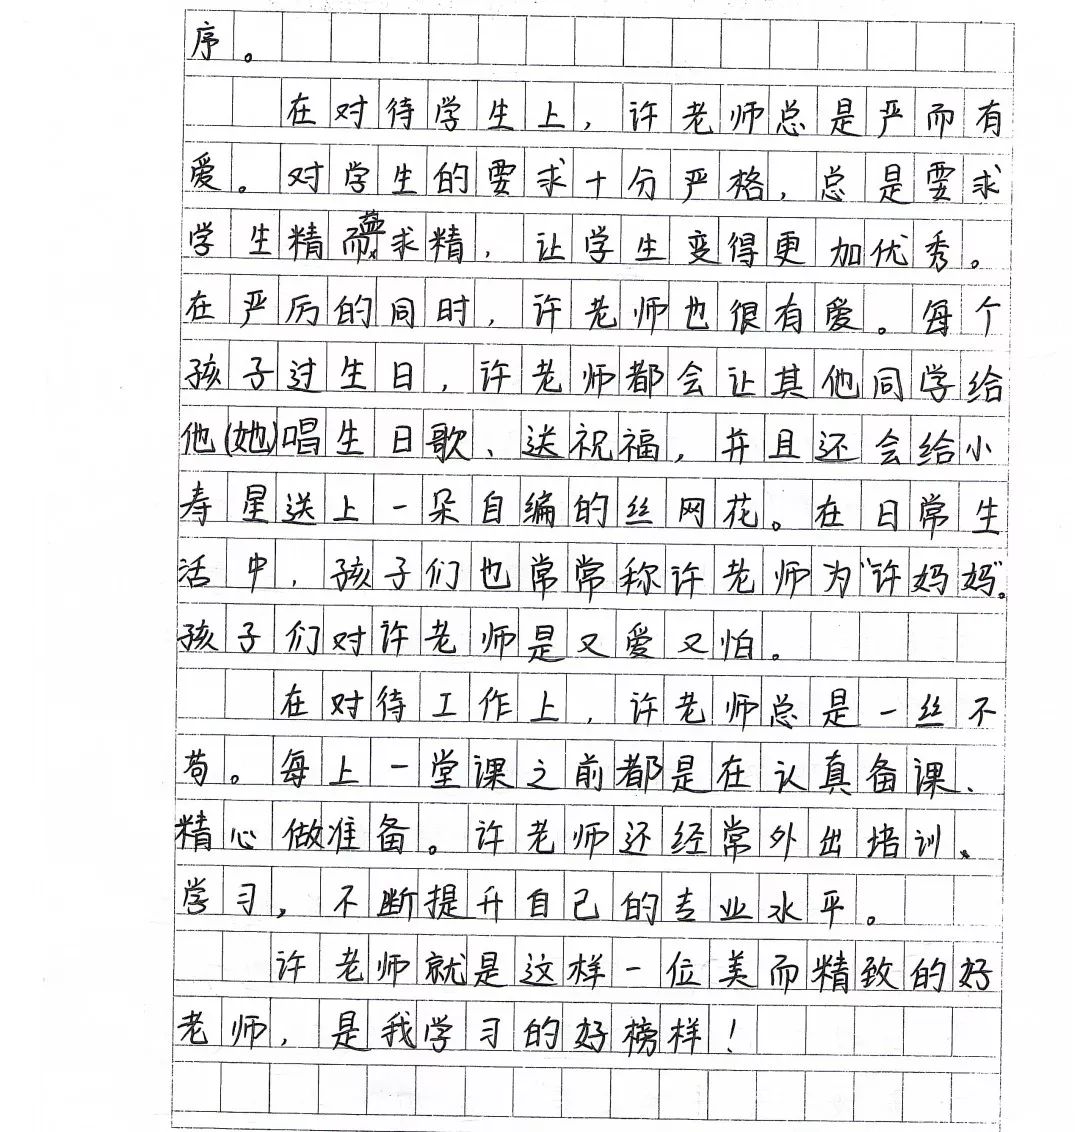 序。
在对待学生上，许老师总是严而有
爱。对学生的要求十分严格，总是要求
学生精益求精，让学生变得更加优秀。
在严厉的同时，许老师也很有爱。每个
孩子过生日，许老师都会让其他同学给
他(她)唱生日歌、送祝福，并且还会给小
寿星送上一朵自编的丝网花。在日常生
活中，孩子们也常常称许老师为“许妈妈”。
孩子们对许老师是又爱又怕。
在对待工作上，许老师总是一丝不
苟。每上一堂课之前都是在认真备课、
精心做准备。许老师还经常外出培训、
学习，不断提升自己的专业水平。
许老师就是这样一位美而精致的好
老师，是我学习的好榜样！